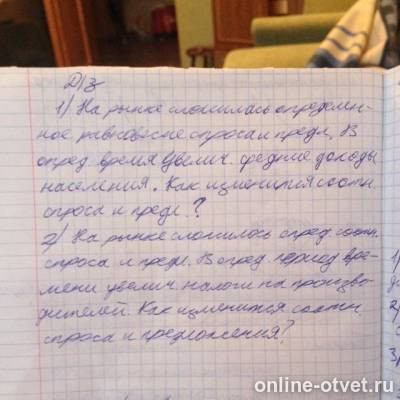 Д/з
1) На рынке сложилась определен-
ное равновесие спроса и предл. В
опред. время увелич. средние доходы
населения. Как изменится соотн.
спроса и предл.?
2) На рынке сложилось опред. соотн.
спроса и предл. В опред. период вре-
мени увелич. налоги на произво-
дителей. Как изменится соотн.
спроса и предложения?
1)
2)
3)
online-otvet.ru